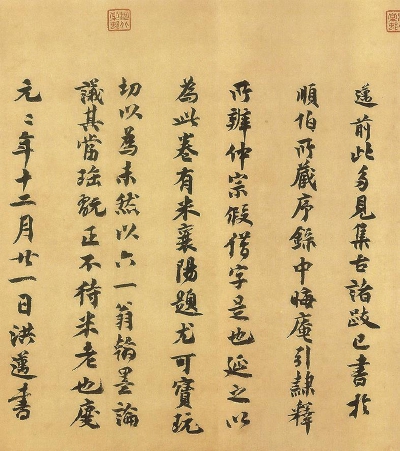 邁前此多見集古諸跋已書於
順伯所藏序錄中晦庵引隸釋
所辨仲宗假借字是也延之以
為此卷有米襄陽題尤可寶玩
切以為未然以六一翁翰墨論
議其當正不待米老也慶
元二年十二月廿一日洪邁書